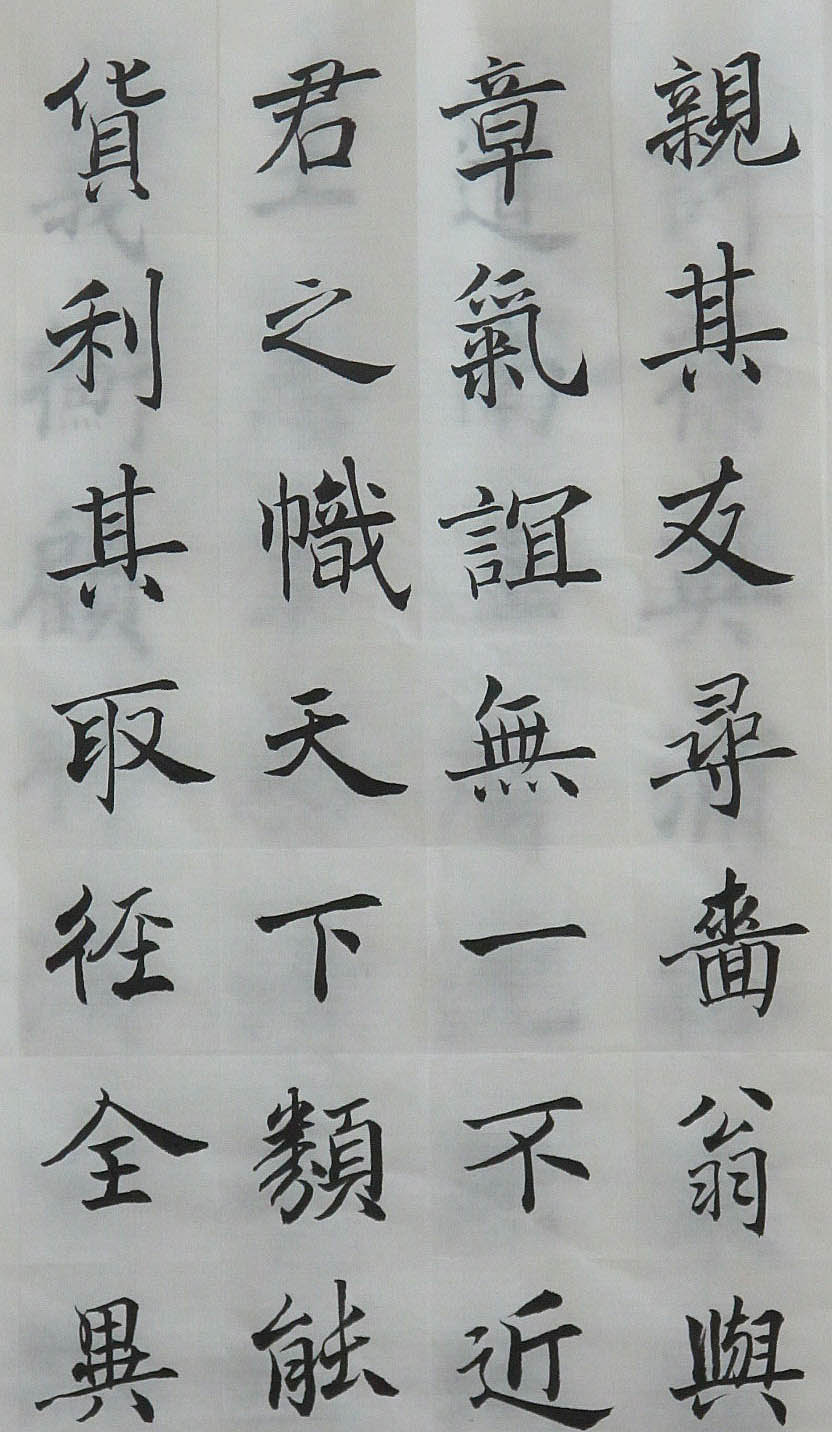 親其友尋嗇翁與
章氣誼無一不近
君之幟天下類能
貨利其取徑全異